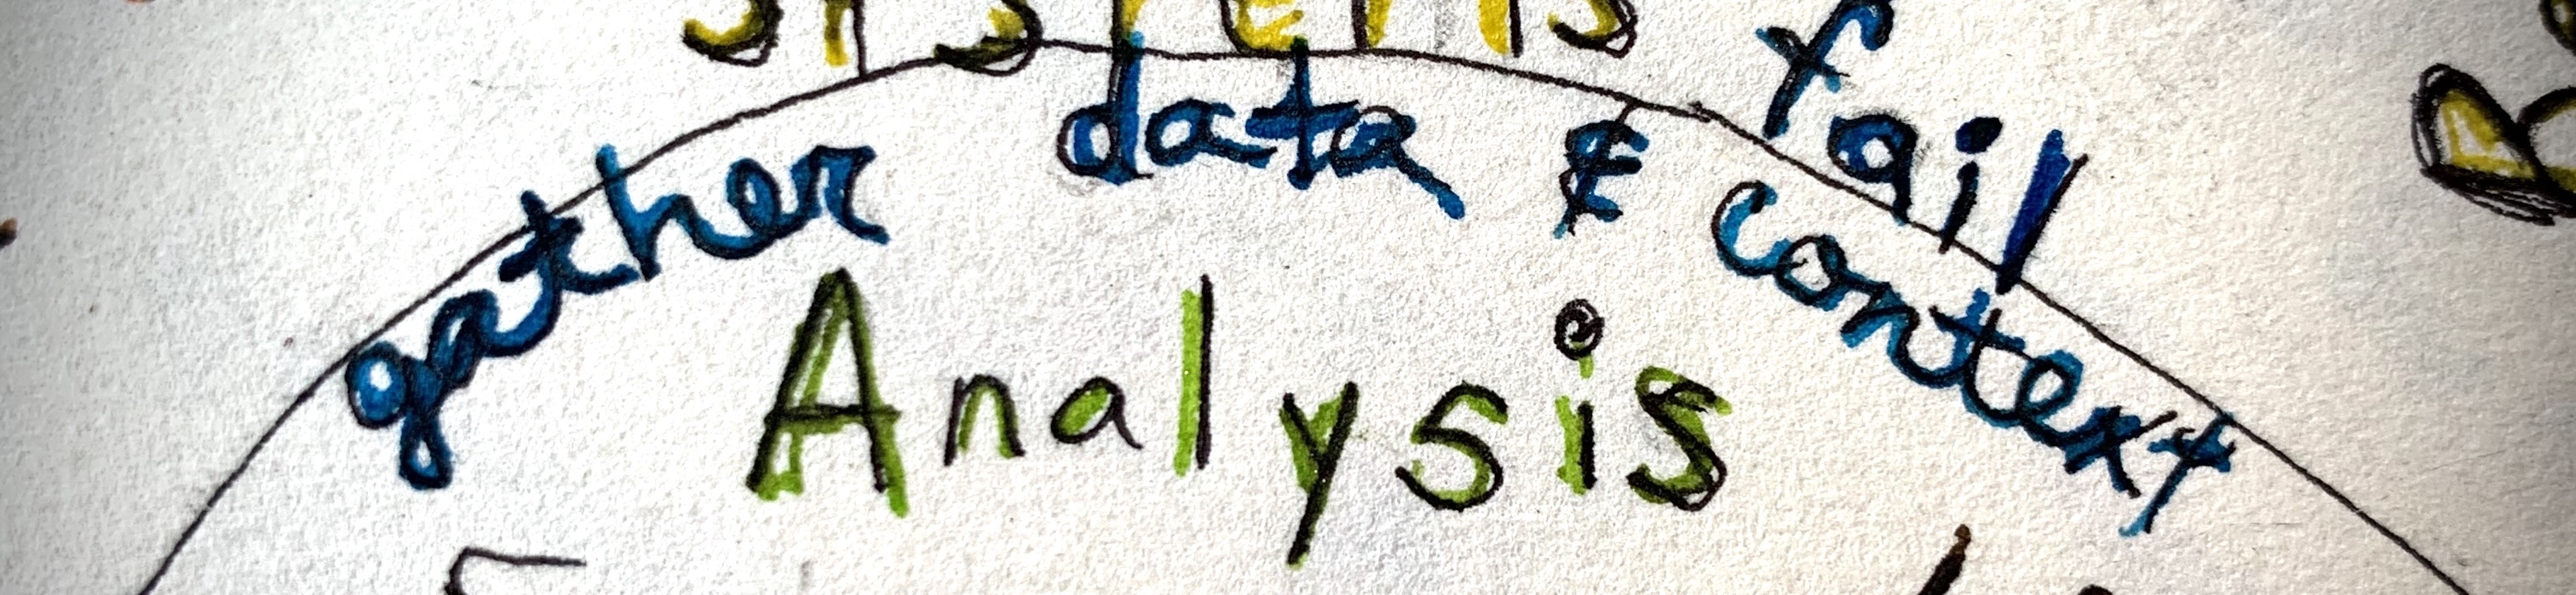 systems fail
gather data & context
Analysis